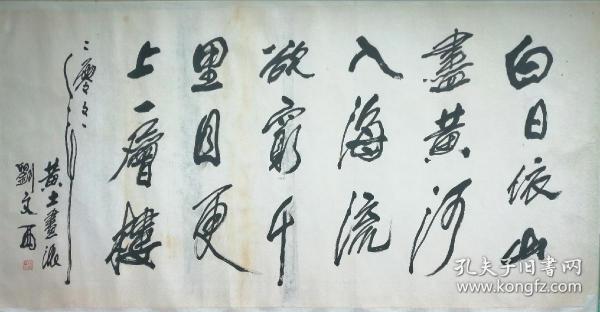 白日依山
盡黃河
入海流
欲窮千
里目更
上一層樓
黄土畫派
劉文西
孔夫子旧书网
www.kongfz.com